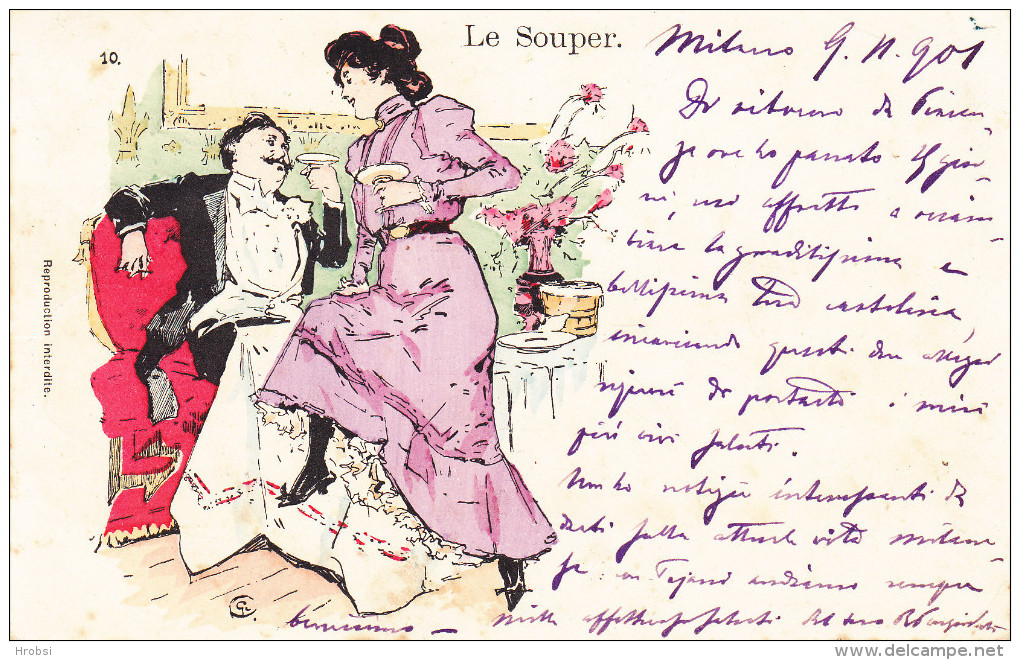 Le Souper.
10.
Reproduction interdite.
Milano 9. 11. 901
Di ritorno da Piacen-
za ove ho passato 15 gior-
ni, mi affretto a ricam-
biare la graditissima e
bellissima tua cartolina,
incaricando questi due allegri
di portarti i miei
più vivi saluti.
Non ho notizie interessanti da
darti sulla attuale vita milane-
se: andiamo sempre
benissimo — mille affettuosi saluti dal tuo
Hrobsi
delcampe.net